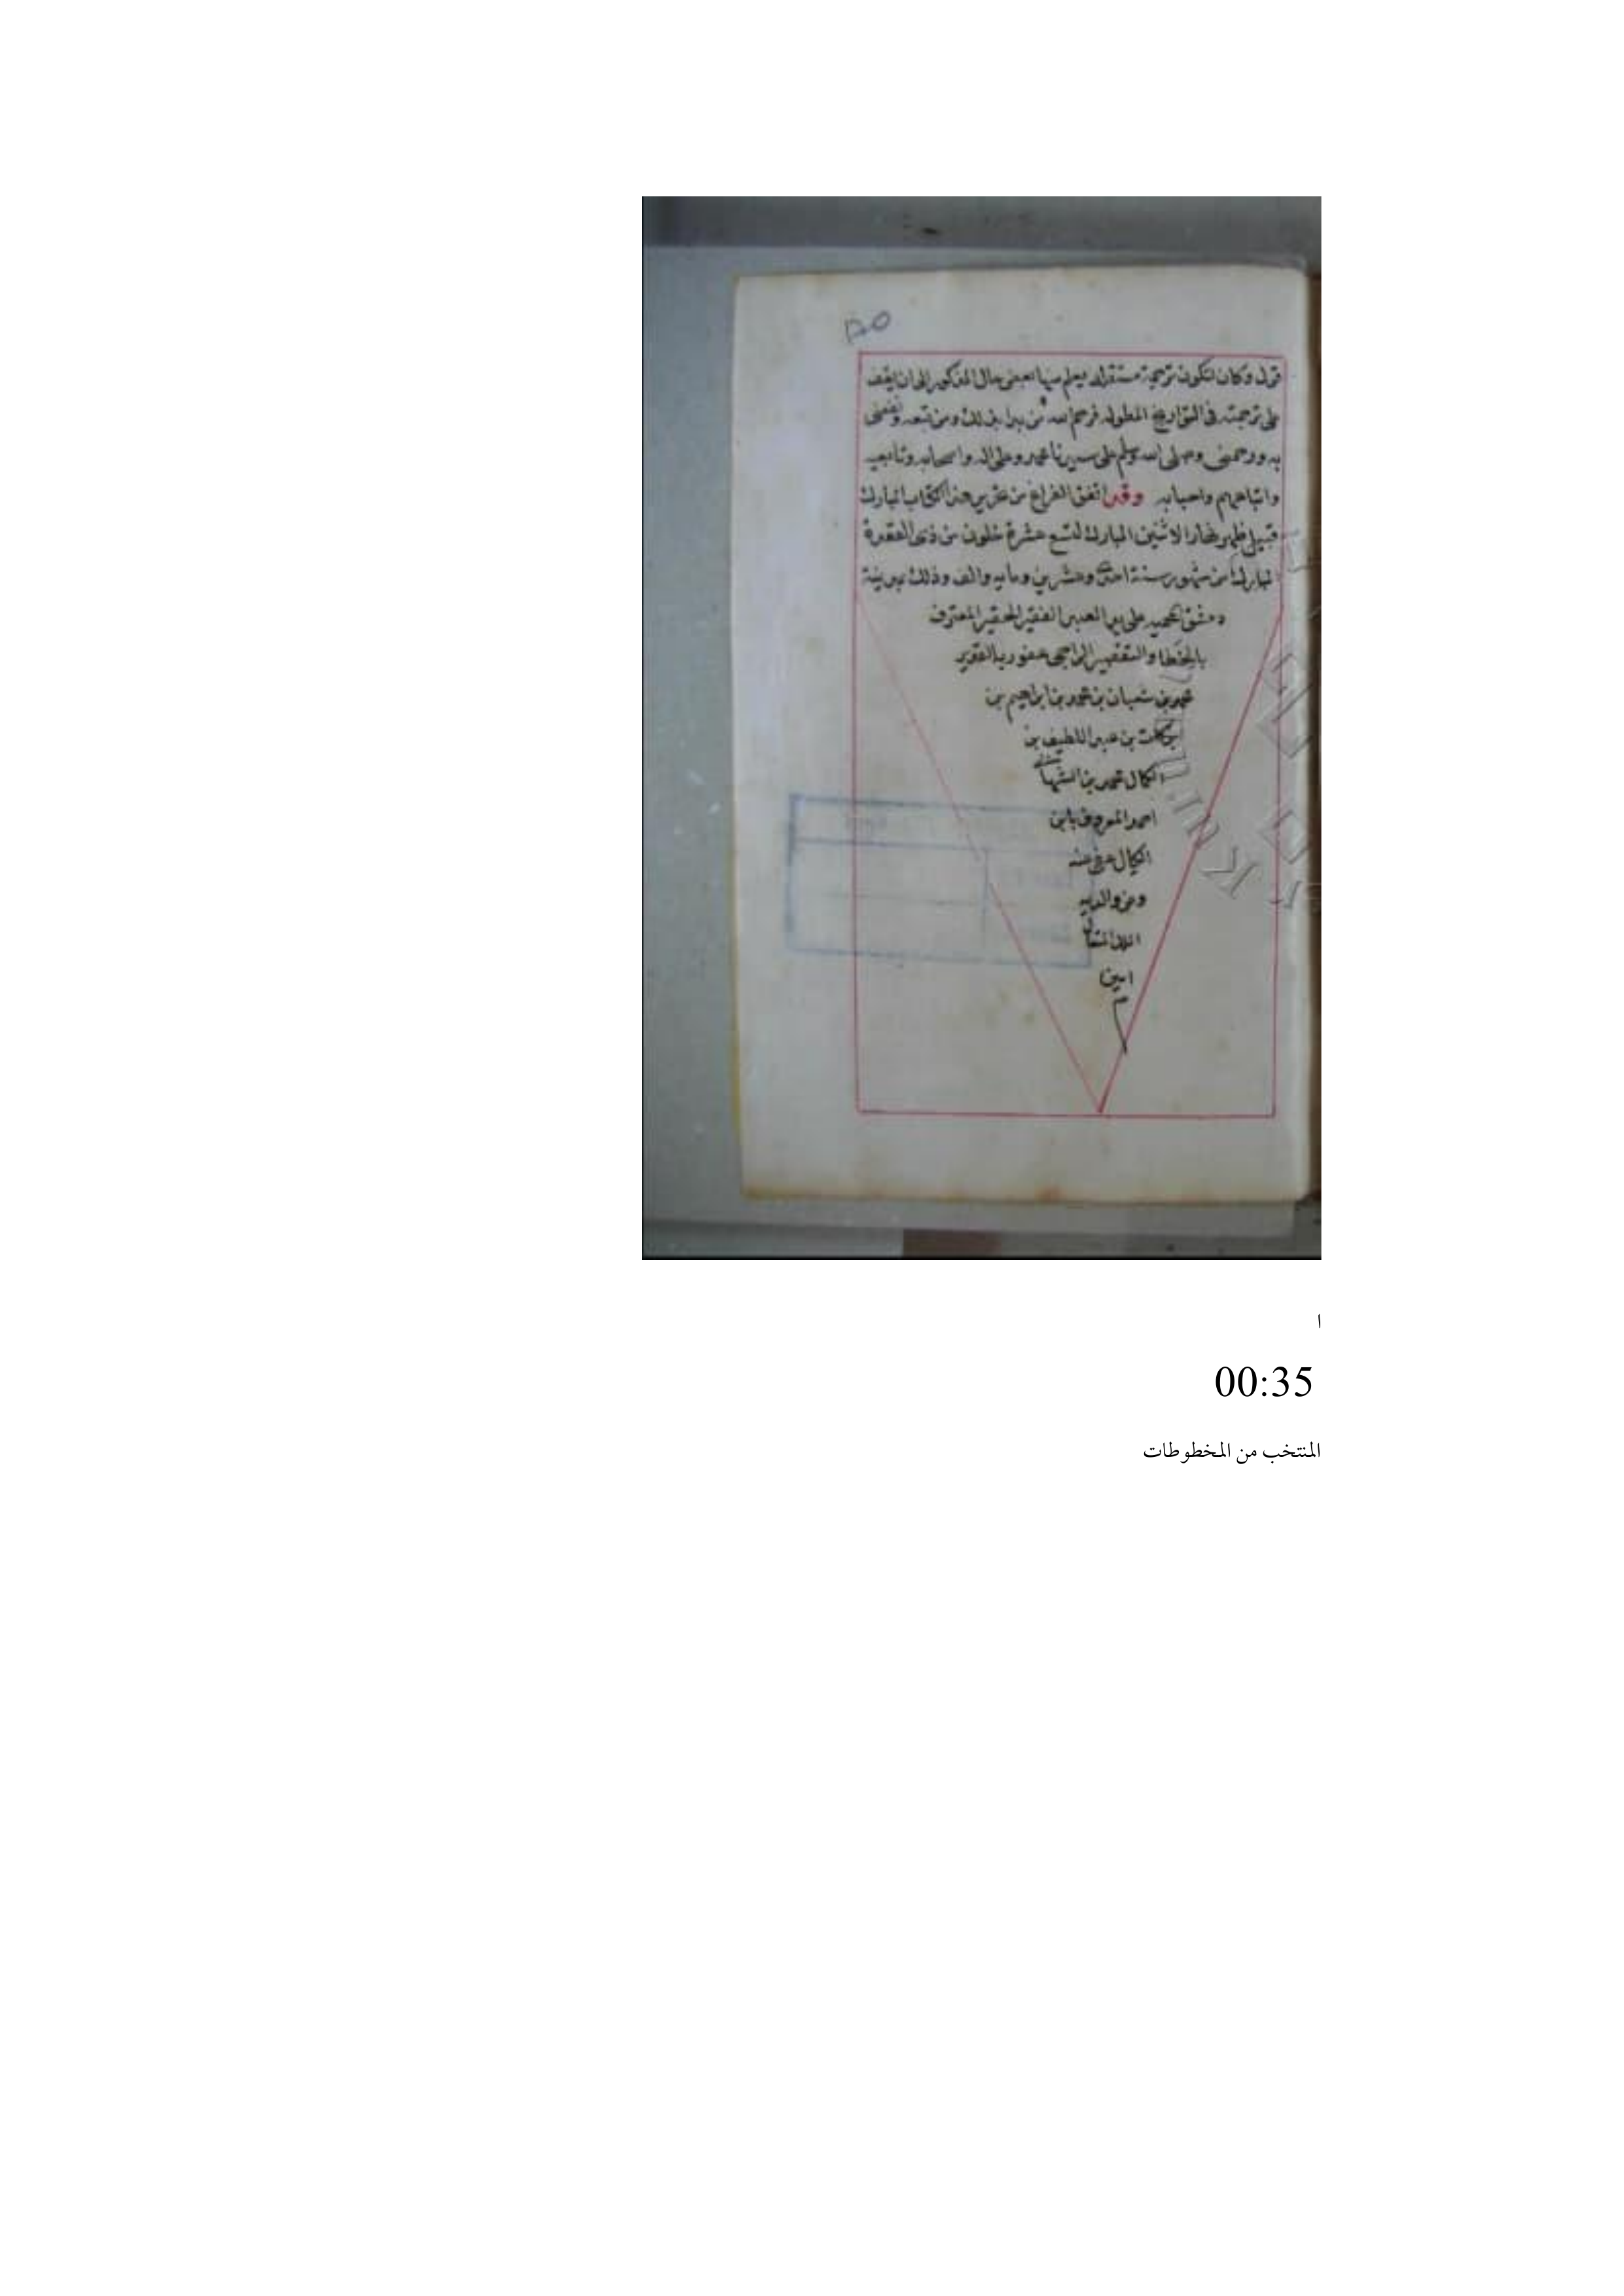 ١٢٥
قول وكان لتكون ترجمة مستقلة يعلم منها بعض حال المذكور الى ان يقف
على ترجمته في التواريخ المطوله فرحم الله من بدا بذلك ومن تبعه ونفعني
به ورحمني وصلى الله وسلم على سيدنا محمد وعلى اله واصحابه وتابعيه
واتباعهم واحبابه وقد اتفق الفراغ من هذا الكتاب المبارك
قبيل ظهر نهار الاثنين المبارك لتسع عشرة خلون من ذي القعدة
المبارك من شهور سنة احدى وعشرين ومايه والف وذلك بمدينة
دمشق المحميه على يد العبد الفقير الحقير المعترف
بالخطا والتقصير الراجي عفو ربه القدير
محمد بن شعبان بن محمد بن ابراهيم بن
بركات بن عبد اللطيف بن
الكمال محمد بن الشهاب
احمد المعروف بابن
الكيال عفي عنه
وعن والديه
الملك المتعال
امين
م
ا
00:35
المنتخب من المخطوطات